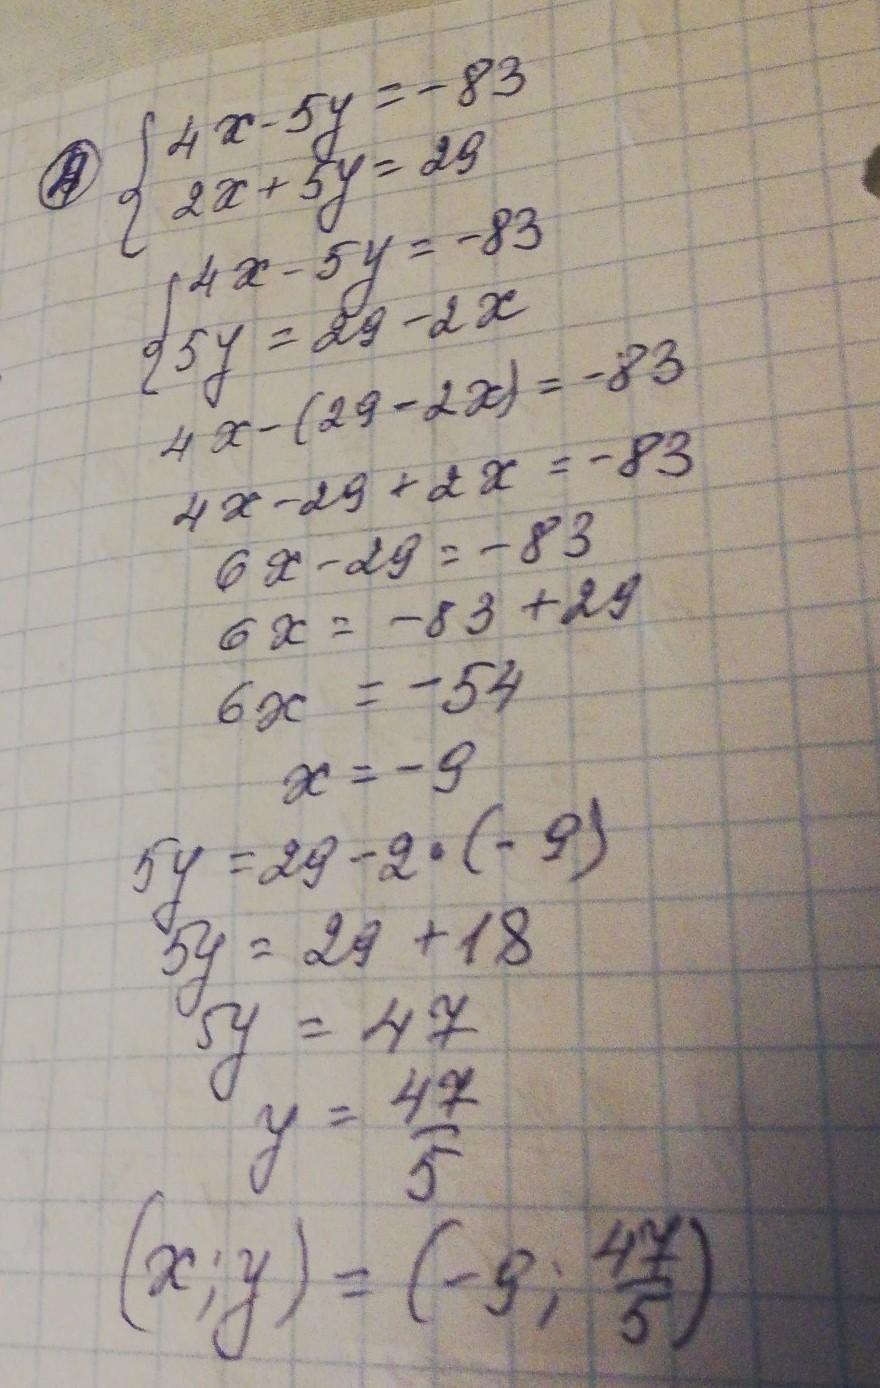 4x-5y=-83
2x+5y=29
4x-5y=-83
5y=29-2x
4x-(29-2x)=-83
4x-29+2x=-83
6x-29=-83
6x=-83+29
6x=-54
x=-9
5y=29-2·(-9)
5y=29+18
5y=47
y=47/5
(x;y)=(-9;47/5)